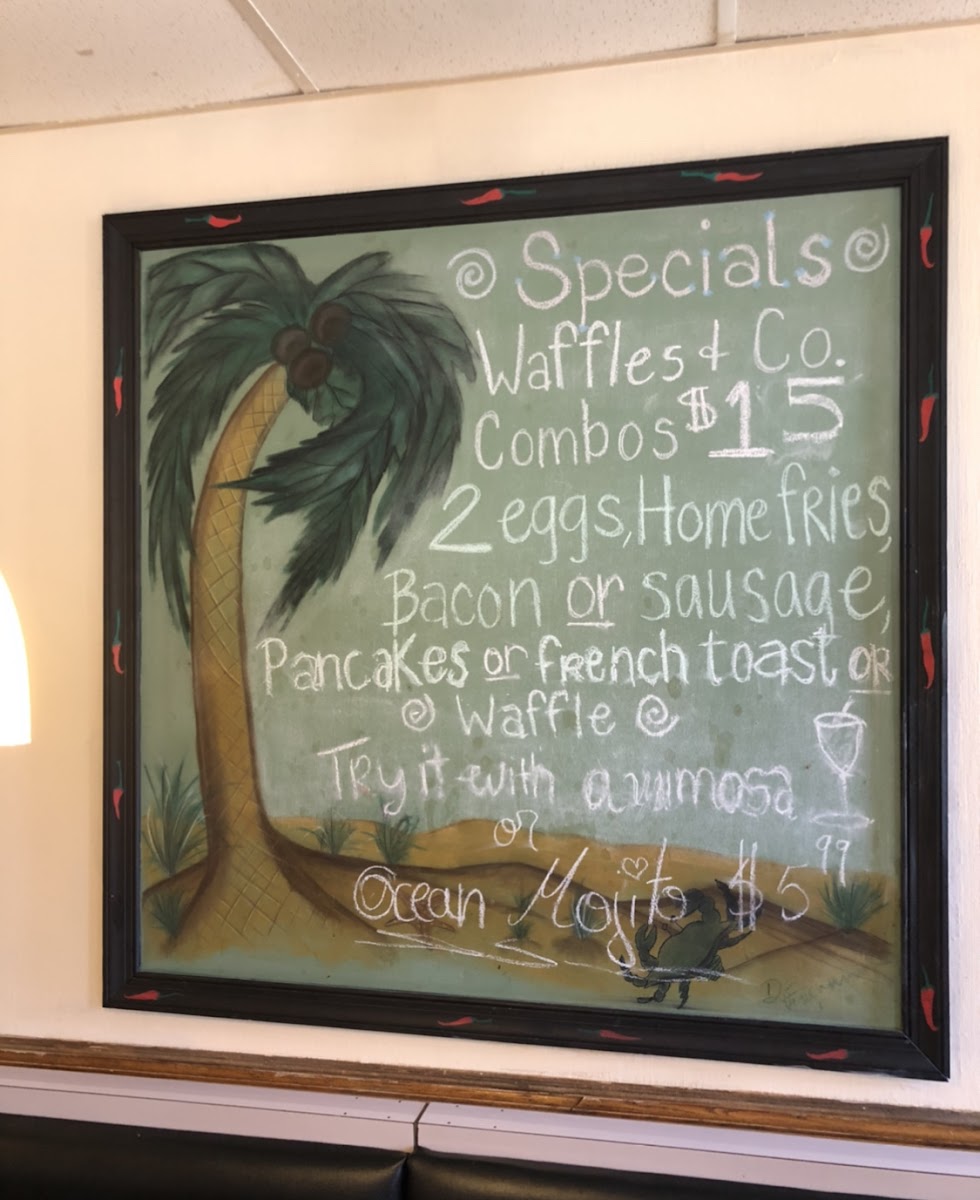 Specials
Waffles & Co.
Combos $15
2 eggs, Home fries,
Bacon or sausage,
Pancakes or french toast OR
Waffle
Try it with a mimosa
or
Ocean Mojito $5 99